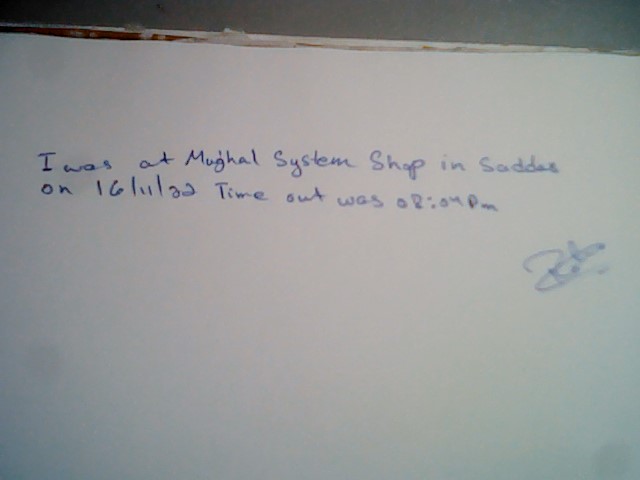 I was at Mughal System Shop in Saddar
on 16/11/22 Time out was 08:04 Pm